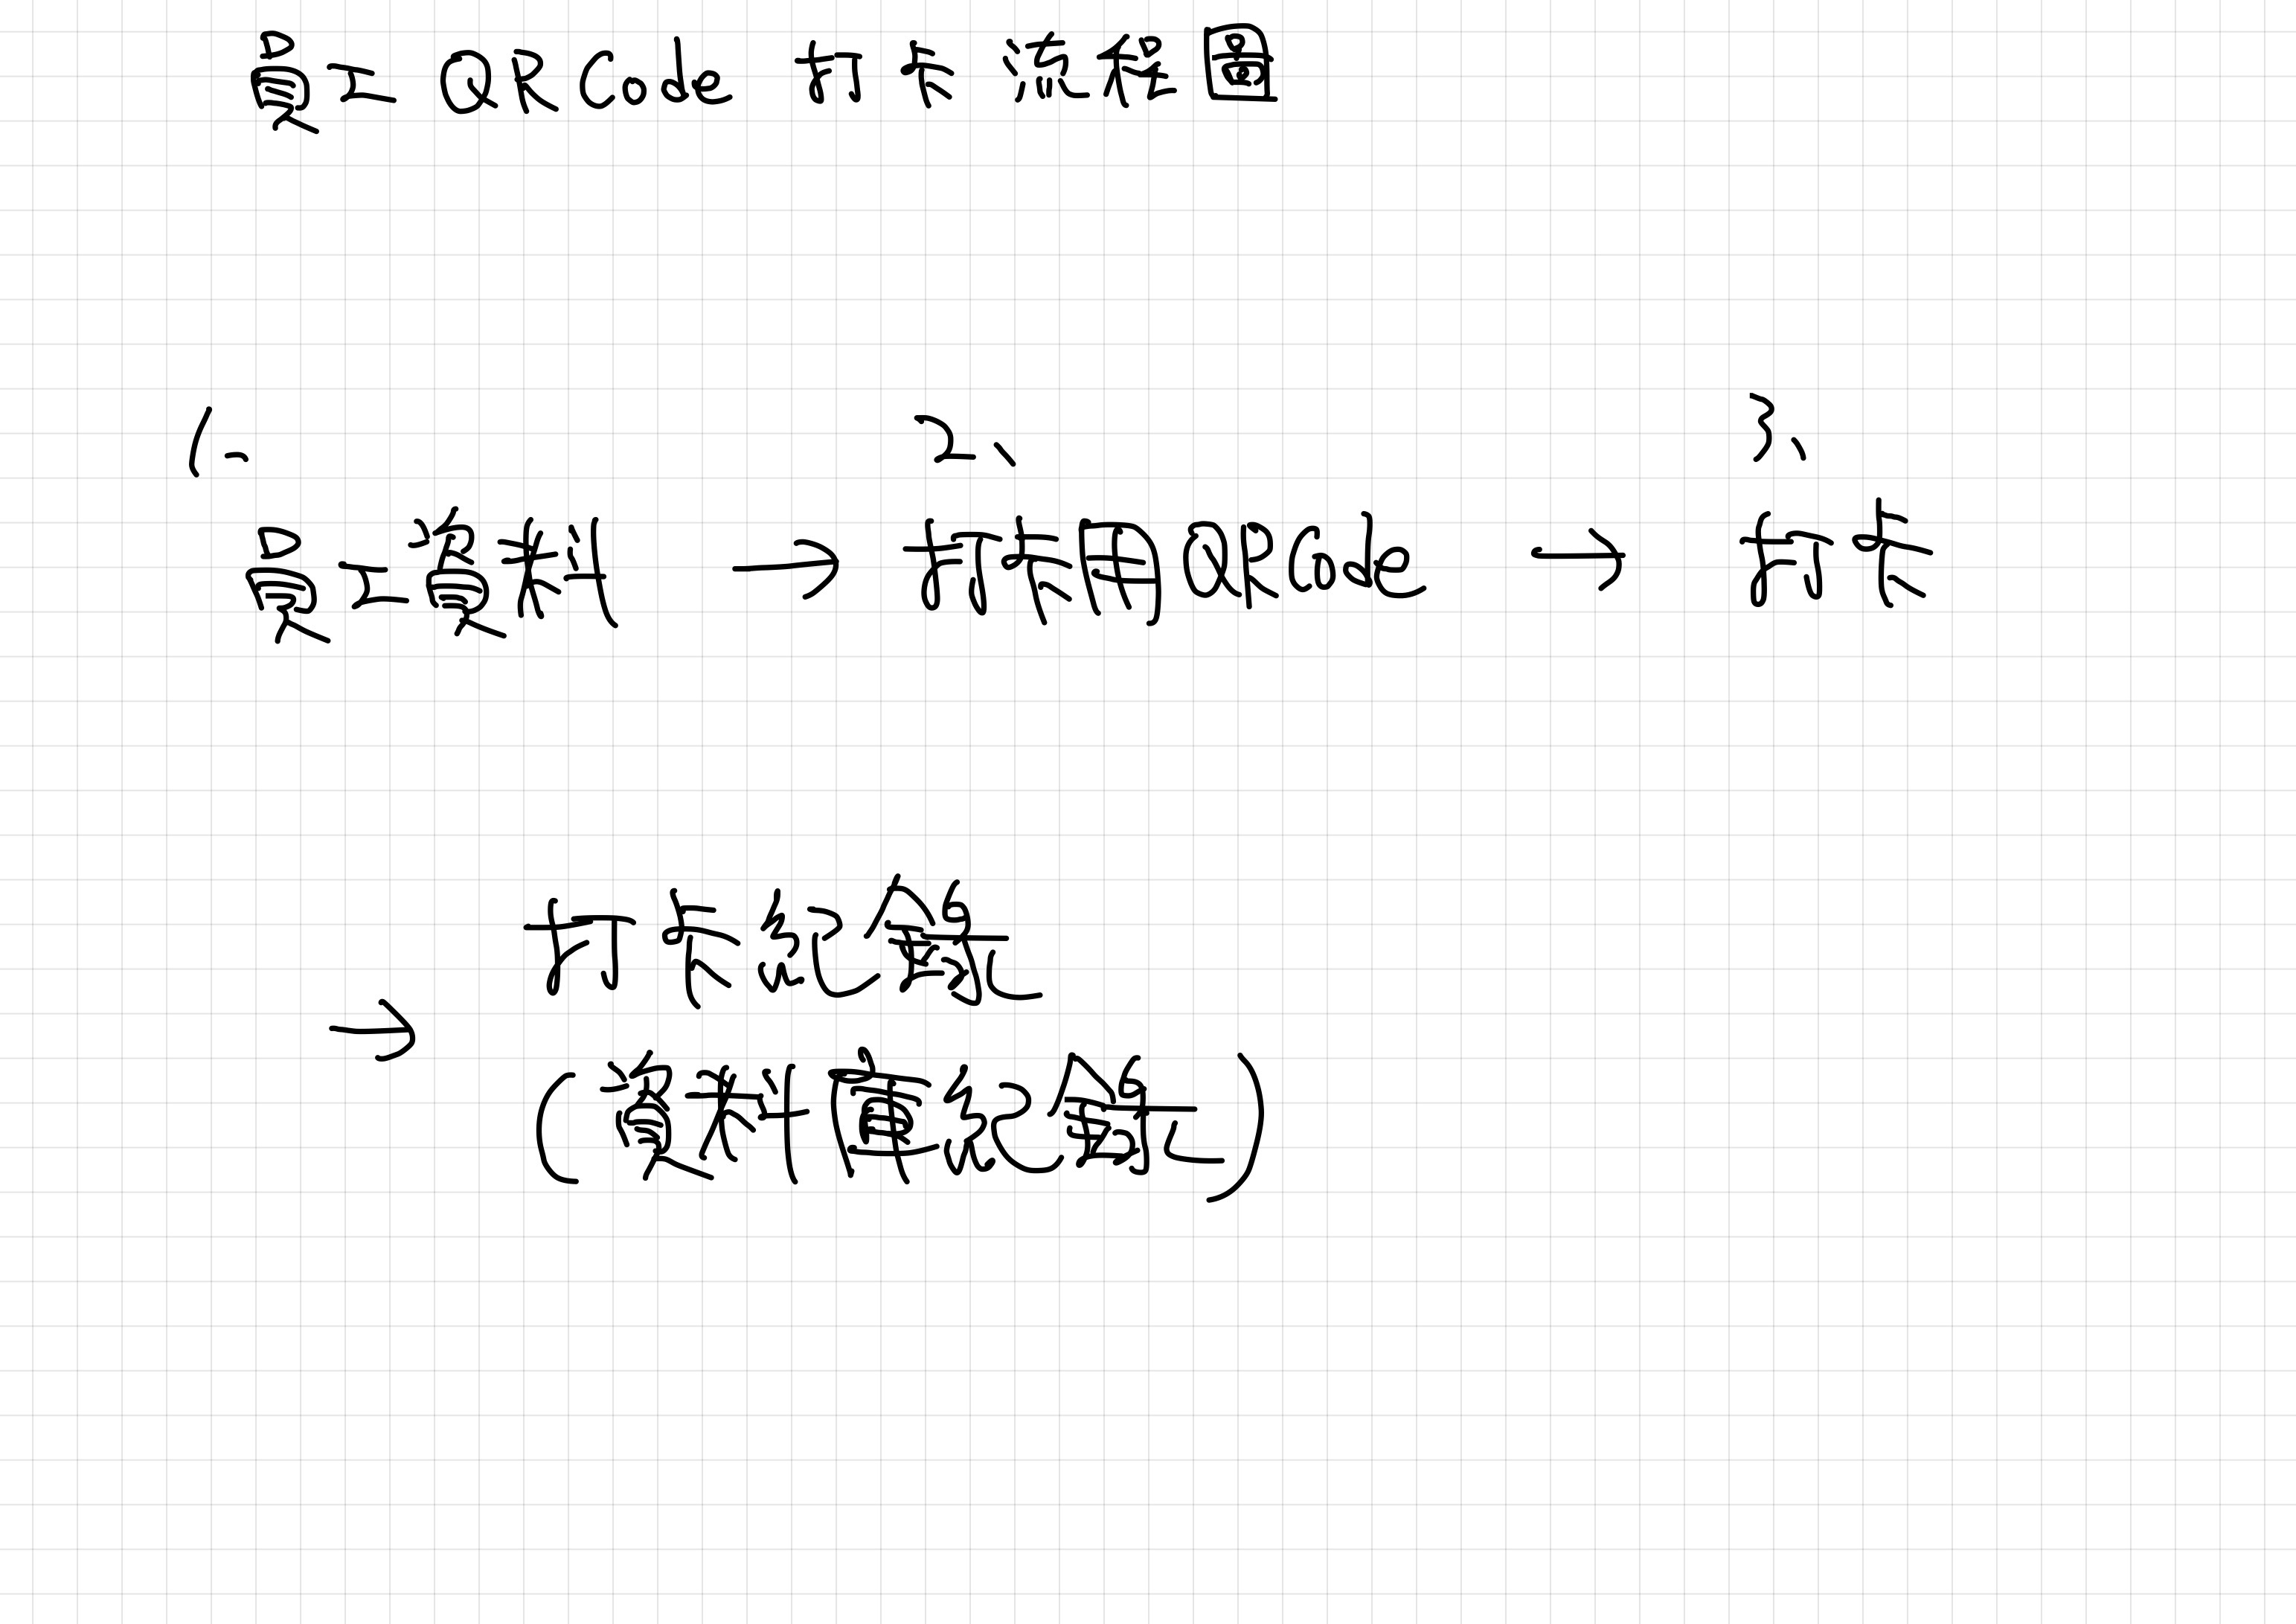 員工 QR Code 打卡流程圖
1、
員工資料 → 
2、
打卡用QRCode →
3、
打卡
打卡紀錄
→
(資料庫紀錄)